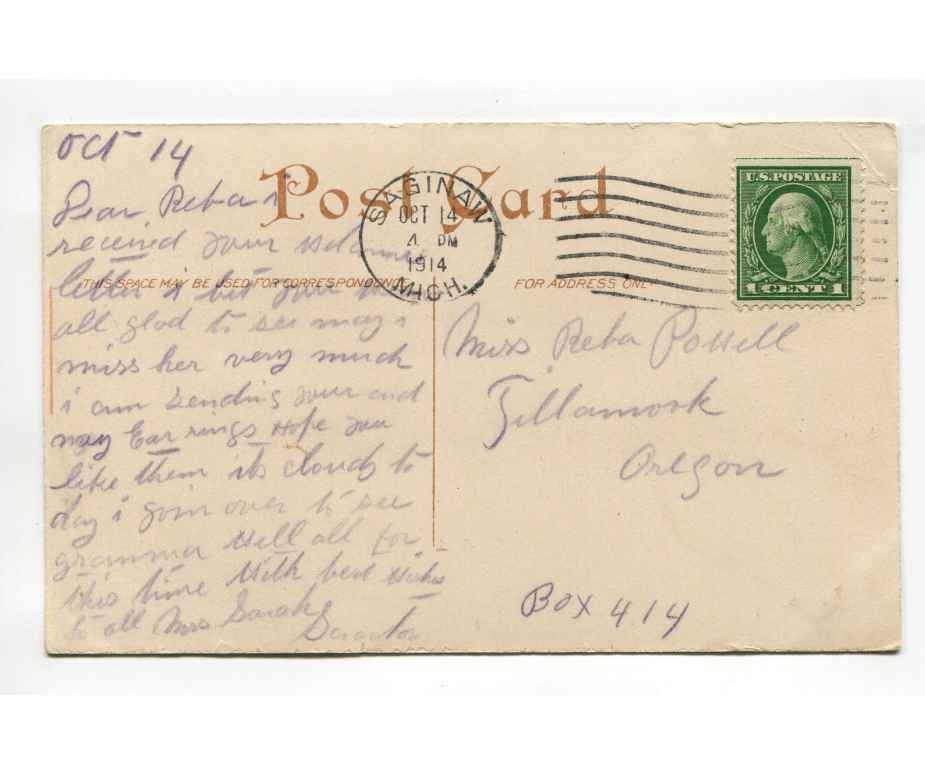 Oct 14
Post Card
SAGINAW
OCT 14
4 PM
1914
MICH.
U.S. POSTAGE
1 CENT 1
THIS SPACE MAY BE USED FOR CORRESPONDENC
FOR ADDRESS ONL
Dear Reba i
received your welcome
letter i bet your
all glad to see may i
miss her very much
i am sending your and
may Ear rings Hope you
like them its cloudy to
day i goin over to see
gramma Well all for
this time With best wishes
to all Mrs Sarah
Miss Reba
Tillamook
Oregon
Box 414